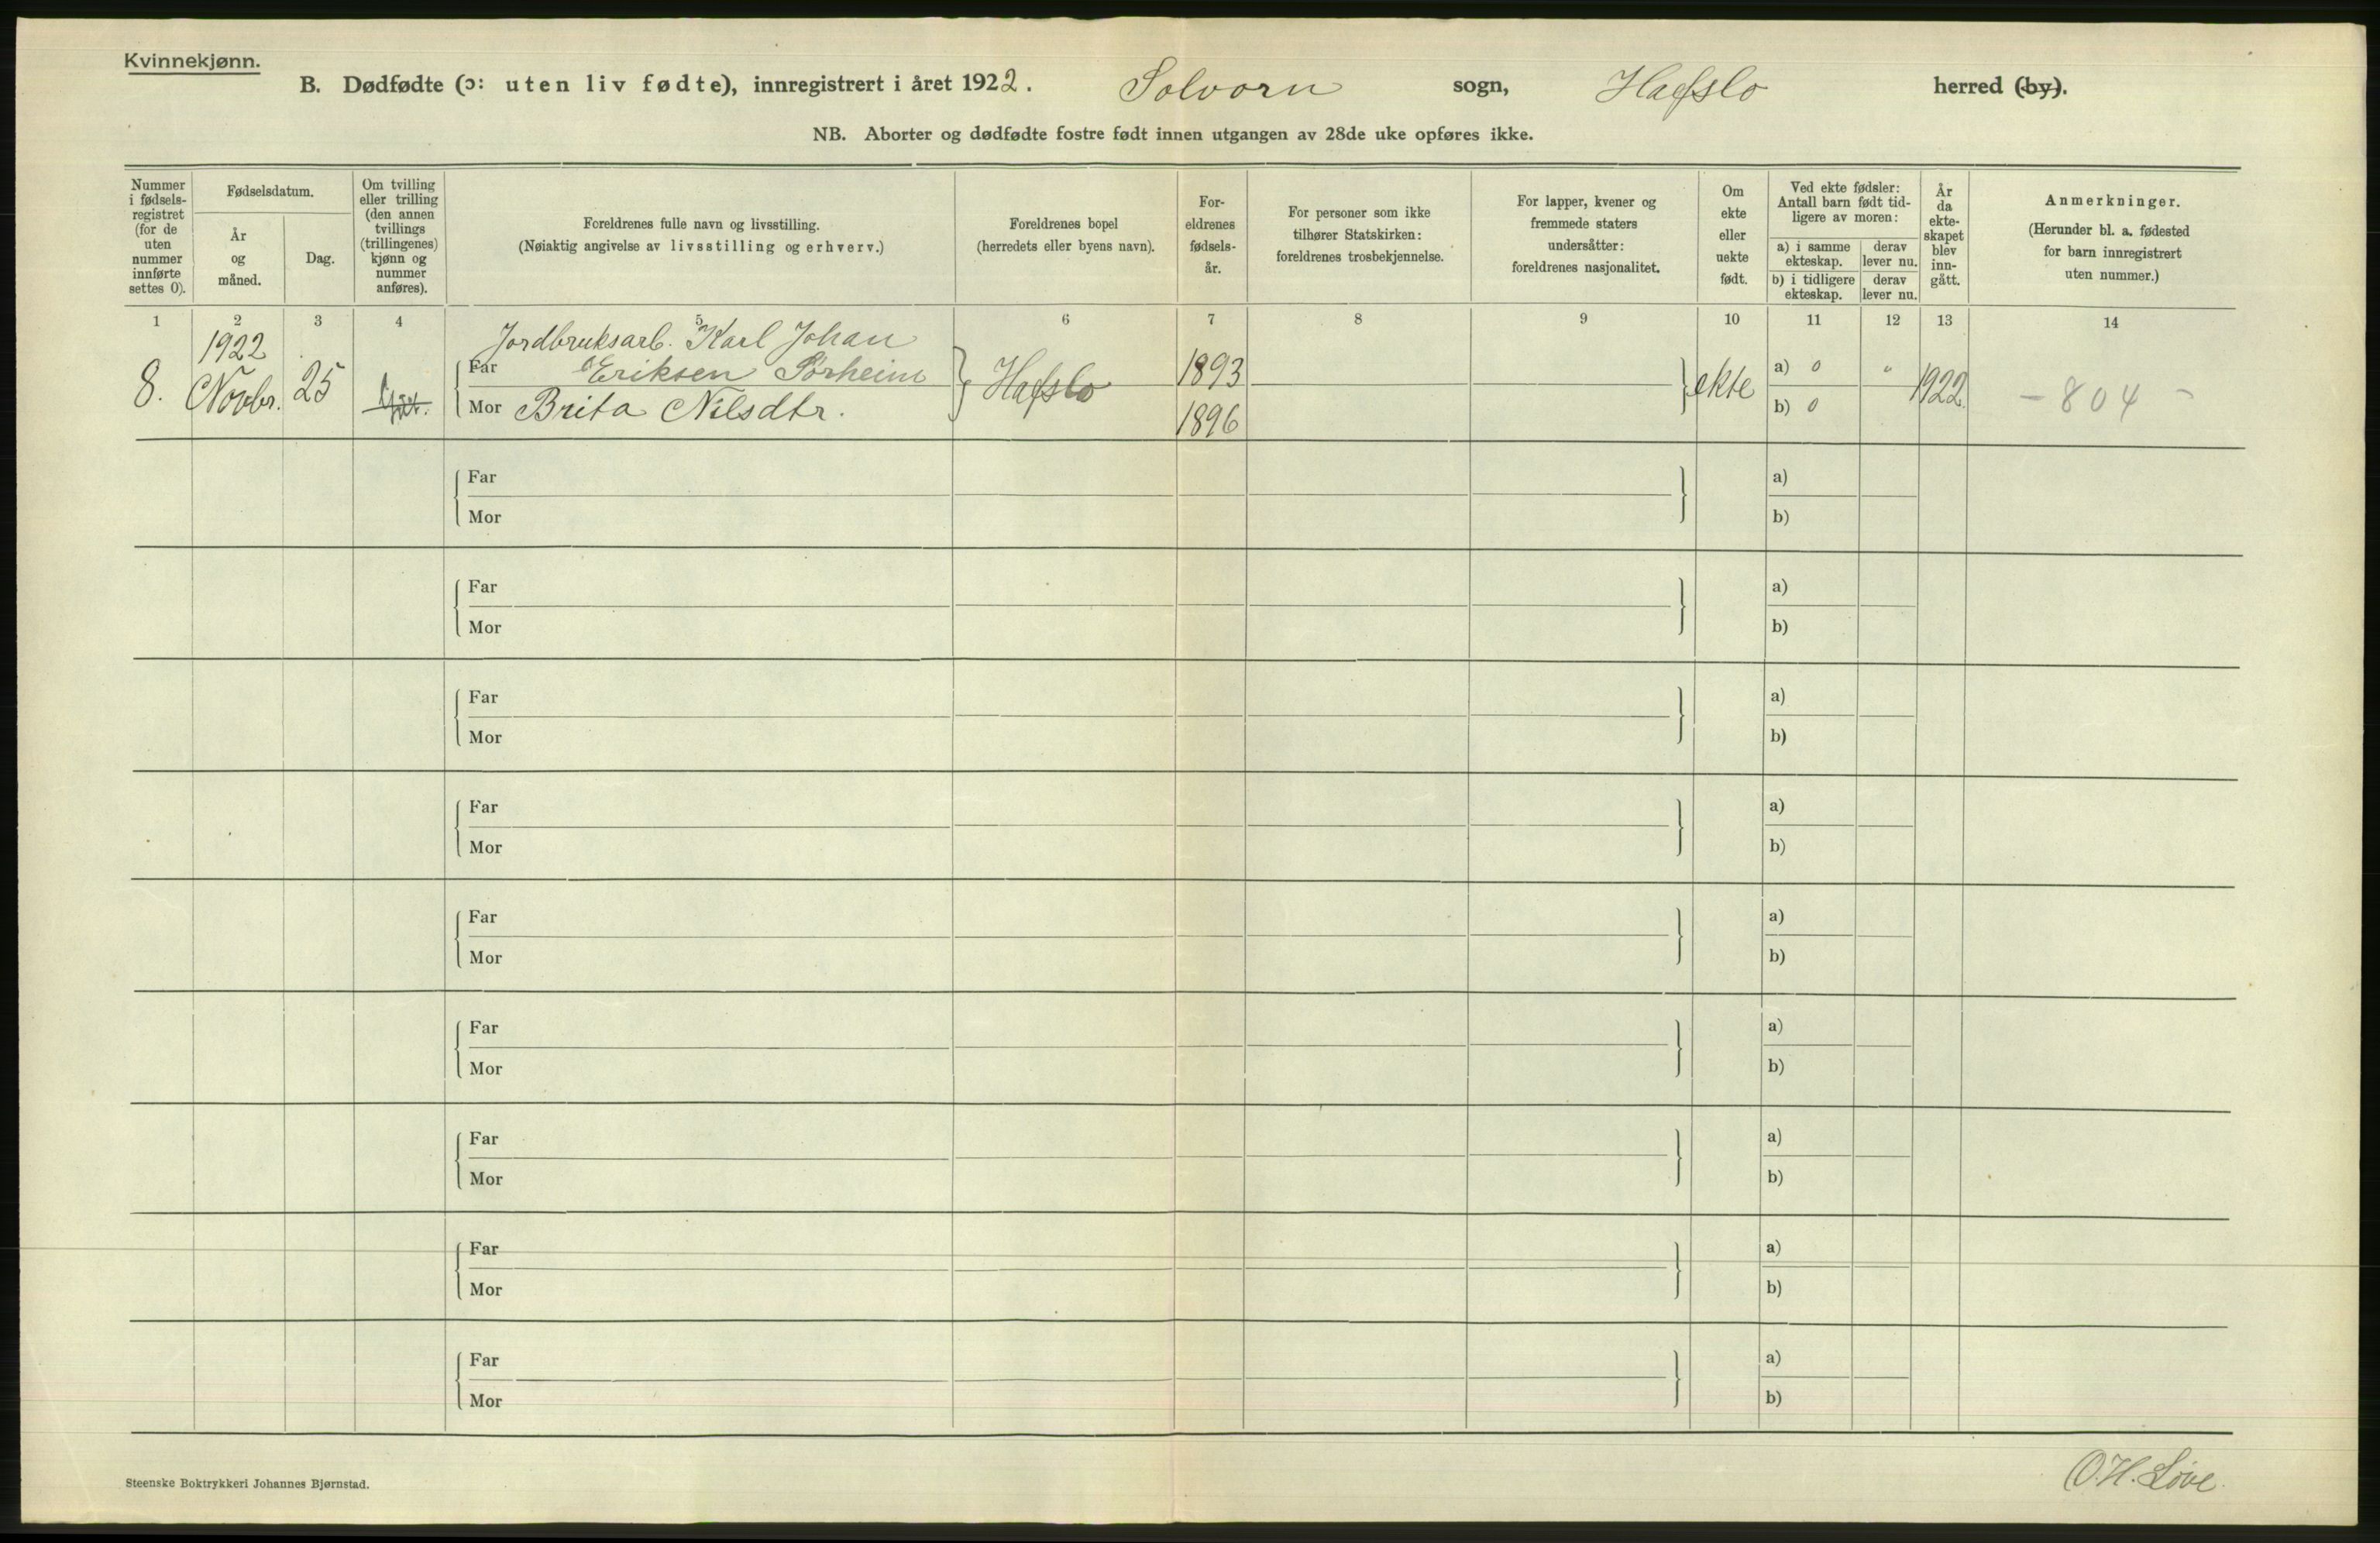 Kvinnekjønn.
B. Dødfødte (ɔ: uten liv fødte), innregistrert i året 1922. Solvorn sogn, Hafslo herred (by).
NB. Aborter og dødfødte fostre født innen utgangen av 28de uke opføres ikke.
Nummer
i fødsels-
registret
(for de
uten
nummer
innførte
settes 0).
Fødselsdatum.
År
og
måned.
Dag.
Om tvilling
eller trilling
(den annen
tvillings
(trillingenes)
kjønn og
nummer
anføres).
Foreldrenes fulle navn og livsstilling.
(Nøiaktig angivelse av livsstilling og erhverv.)
Foreldrenes bopel
(herredets eller byens navn).
For-
eldrenes
fødsels-
år.
For personer som ikke
tilhører Statskirken:
foreldrenes trosbekjennelse.
For lapper, kvener og
fremmede staters
undersåtter:
foreldrenes nasjonalitet.
Om
ekte
eller
uekte
født.
Ved ekte fødsler:
Antall barn født tid-
ligere av moren:
a) i samme
ekteskap.
derav
lever nu.
b) i tidligere
ekteskap.
derav
lever nu.
År
da
ekte-
skapet
blev
inn-
gått.
Anmerkninger.
(Herunder bl. a. fødested
for barn innregistrert
uten nummer.)
1 2 3 4 5 6 7 8 9 10 11 12 13 14
1922
Jordbruksarb. Karl Johan
Far Eriksen Sørheim 1893 a) 0 "
8. Novbr. 25 Hafslo ekte 1922 - 804 -
Mor Brita Nilsdtr. 1896 b) 0
Far a)
Mor b)
Far a)
Mor b)
Far a)
Mor b)
Far a)
Mor b)
Far a)
Mor b)
Far a)
Mor b)
Far a)
Mor b)
Far a)
Mor b)
Far a)
Mor b)
Steenske Boktrykkeri Johannes Bjørnstad.
O.H. Løve.